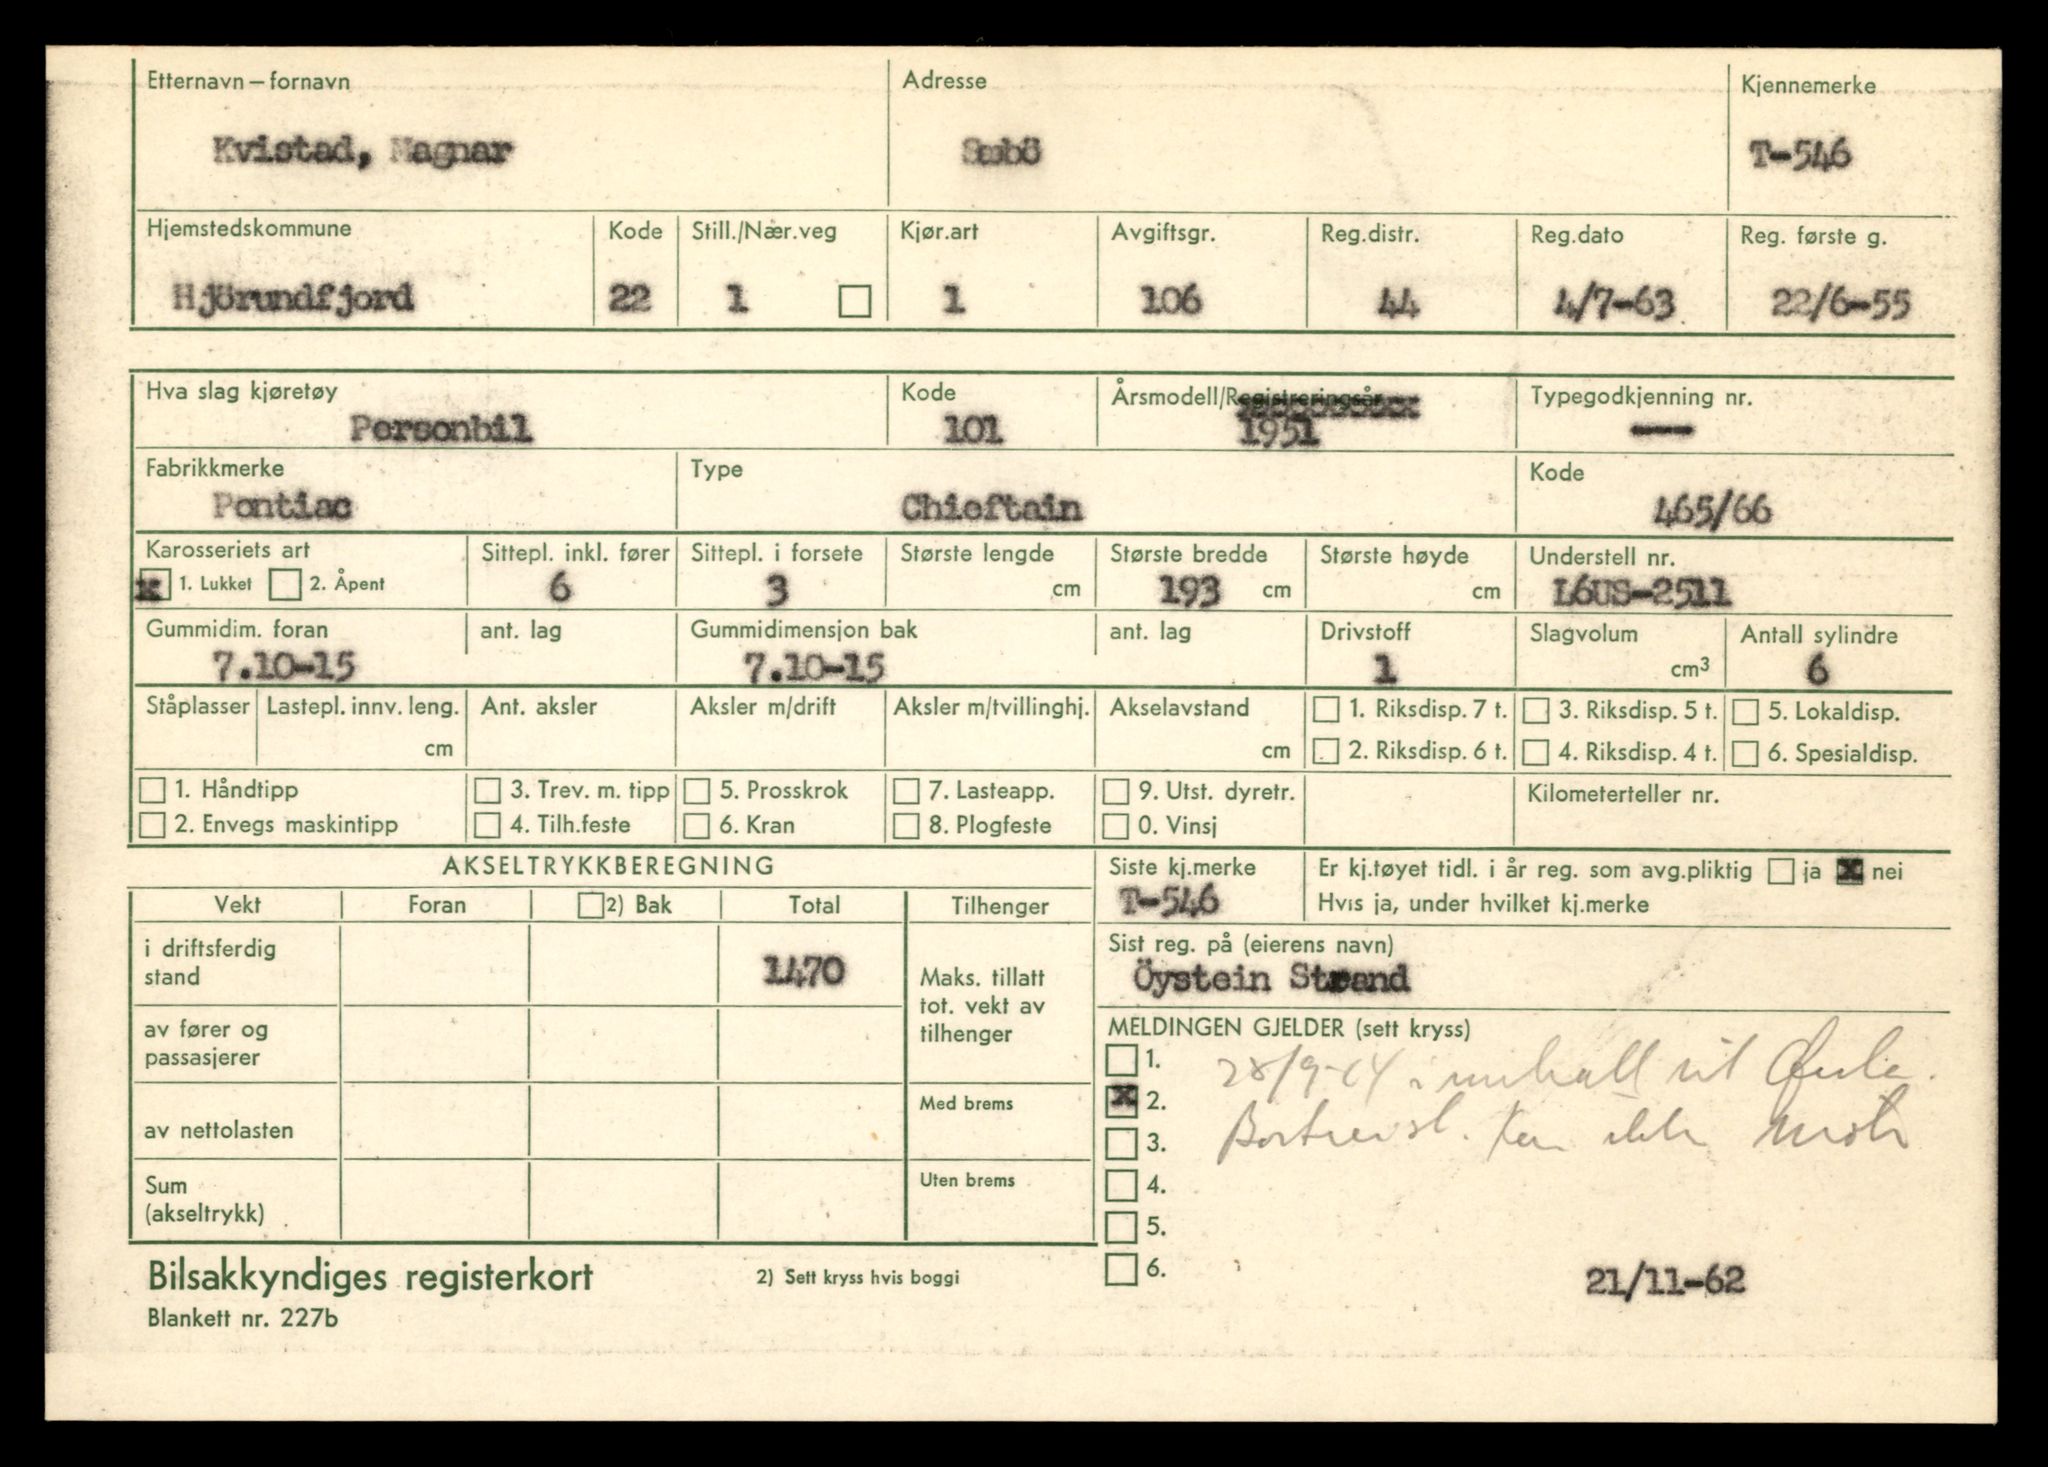 Etternavn – fornavn Adresse Kjennemerke
Kvistad, Magnar Sæbö T-546
Hjemstedskommune Kode Still./Nær.veg Kjør.art Avgiftsgr. Reg.distr. Reg.dato Reg. første g.
Hjörundfjord 22 1 1 106 44 4/7-63 22/6-55
Hva slag kjøretøy Kode Årsmodell/Registreringsår Typegodkjenning nr.
Personbil 101 1951 ----
Fabrikkmerke Type Kode
Pontiac Chieftain 465/66
Karosseriets art Sittepl. inkl. fører Sittepl. i forsete Største lengde Største bredde Største høyde Understell nr.
x 1. Lukket 2. Åpent 6 3 cm 193 cm cm L6US-2511
Gummidim. foran ant. lag Gummidimensjon bak ant. lag Drivstoff Slagvolum Antall sylindre
7.10-15 7.10-15 1 cm³ 6
Ståplasser Lastepl. innv. leng. Ant. aksler Aksler m/drift Aksler m/tvillinghj. Akselavstand 1. Riksdisp. 7 t. 3. Riksdisp. 5 t. 5. Lokaldisp.
cm cm 2. Riksdisp. 6 t. 4. Riksdisp. 4 t. 6. Spesialdisp.
1. Håndtipp 3. Trev. m. tipp 5. Prosskrok 7. Lasteapp. 9. Utst. dyretr. Kilometerteller nr.
2. Envegs maskintipp 4. Tilh.feste 6. Kran 8. Plogfeste 0. Vinsj
AKSELTRYKKBEREGNING Siste kj.merke Er kj.tøyet tidl. i år reg. som avg.pliktig ja x nei
T-546 Hvis ja, under hvilket kj.merke
Vekt Foran 2) Bak Total Tilhenger
Sist reg. på (eierens navn)
Öystein Strand
i driftsferdig
stand 1470
Maks. tillatt
tot. vekt av
tilhenger
MELDINGEN GJELDER (sett kryss)
av fører og
passasjerer
1.
x 2.
3.
4.
5.
6.
Med brems
av nettolasten
Uten brems
Sum
(akseltrykk)
21/11-62
Bilsakkyndiges registerkort 2) Sett kryss hvis boggi
Blankett nr. 227b